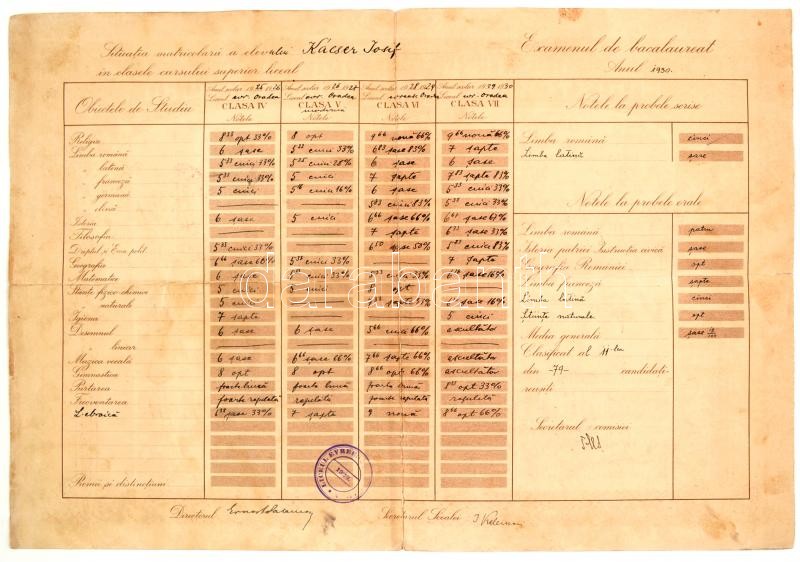 Situația matricolară a elevului Kacser Iosif
în clasele cursului superior liceal
Examenul de bacalaureat
Anul 1930.
Obiectele de Studiu
CLASA IV
CLASA V
CLASA VI
CLASA VII
Notele
Notele
Notele
Notele
Notele la probele scrise
Religie 8 33 opt 33% 8 opt 9 66 nouă 66% 9 66 nouă 66%
Limba română 6 șase 5 33 cinci 33% 6 83 șase 83% 7 șapte
" latină 5 33 cinci 33% 5 25 cinci 25% 6 șase 6 șase
" franceză 5 33 cinci 33% 5 cinci 7 șapte 7 șapte
" germană 5 cinci 5 16 cinci 16% 6 șase 5 33 cinci 33%
" elină 5 83 cinci 83% 5 33 cinci 33%
Istoria 6 șase 5 cinci 6 66 șase 66%
Filosofia 7 șapte
Dreptul și Eco. polit. 5 33 cinci 33% 6 50 șase 50% 5 83 cinci 83%
Geografia 6 66 șase 66% 5 33 cinci 33% 7 șapte
Matematici
Științe fizico-chimice 5 cinci 5 cinci 8 opt
naturale 5 cinci
Igiena 7 șapte 5 cinci
Desemnul 6 șase 6 șase 5 66 cinci 66% ascultător
" liniar
Muzica vocală 6 șase 6 66 șase 66% 7 66 șapte 66% ascultător
Gimnastica 8 opt 8 opt 8 66 opt 66% ascultător
Purtarea foarte bună foarte bună foarte bună 8 33 opt 33%
Frecventarea foarte regulată regulată foarte regulată regulată
L. ebraică 6 33 șase 33% 7 șapte 9 nouă 8 66 opt 66%
Premii și distincțiuni
Limba română cinci
Limba latină șase
Notele la probele orale
Limba română patru
Istoria patriei Instrucția civică șase
Geografia României opt
Limba franceză șapte
Limba latină cinci
Științe naturale opt
Media generală șase
Clasificat al 11-lea
din -79- candidați
reușiți
Secretarul comisiei
LICEUL EVREESC
darabanth
Directorul
Secretarul Școalei